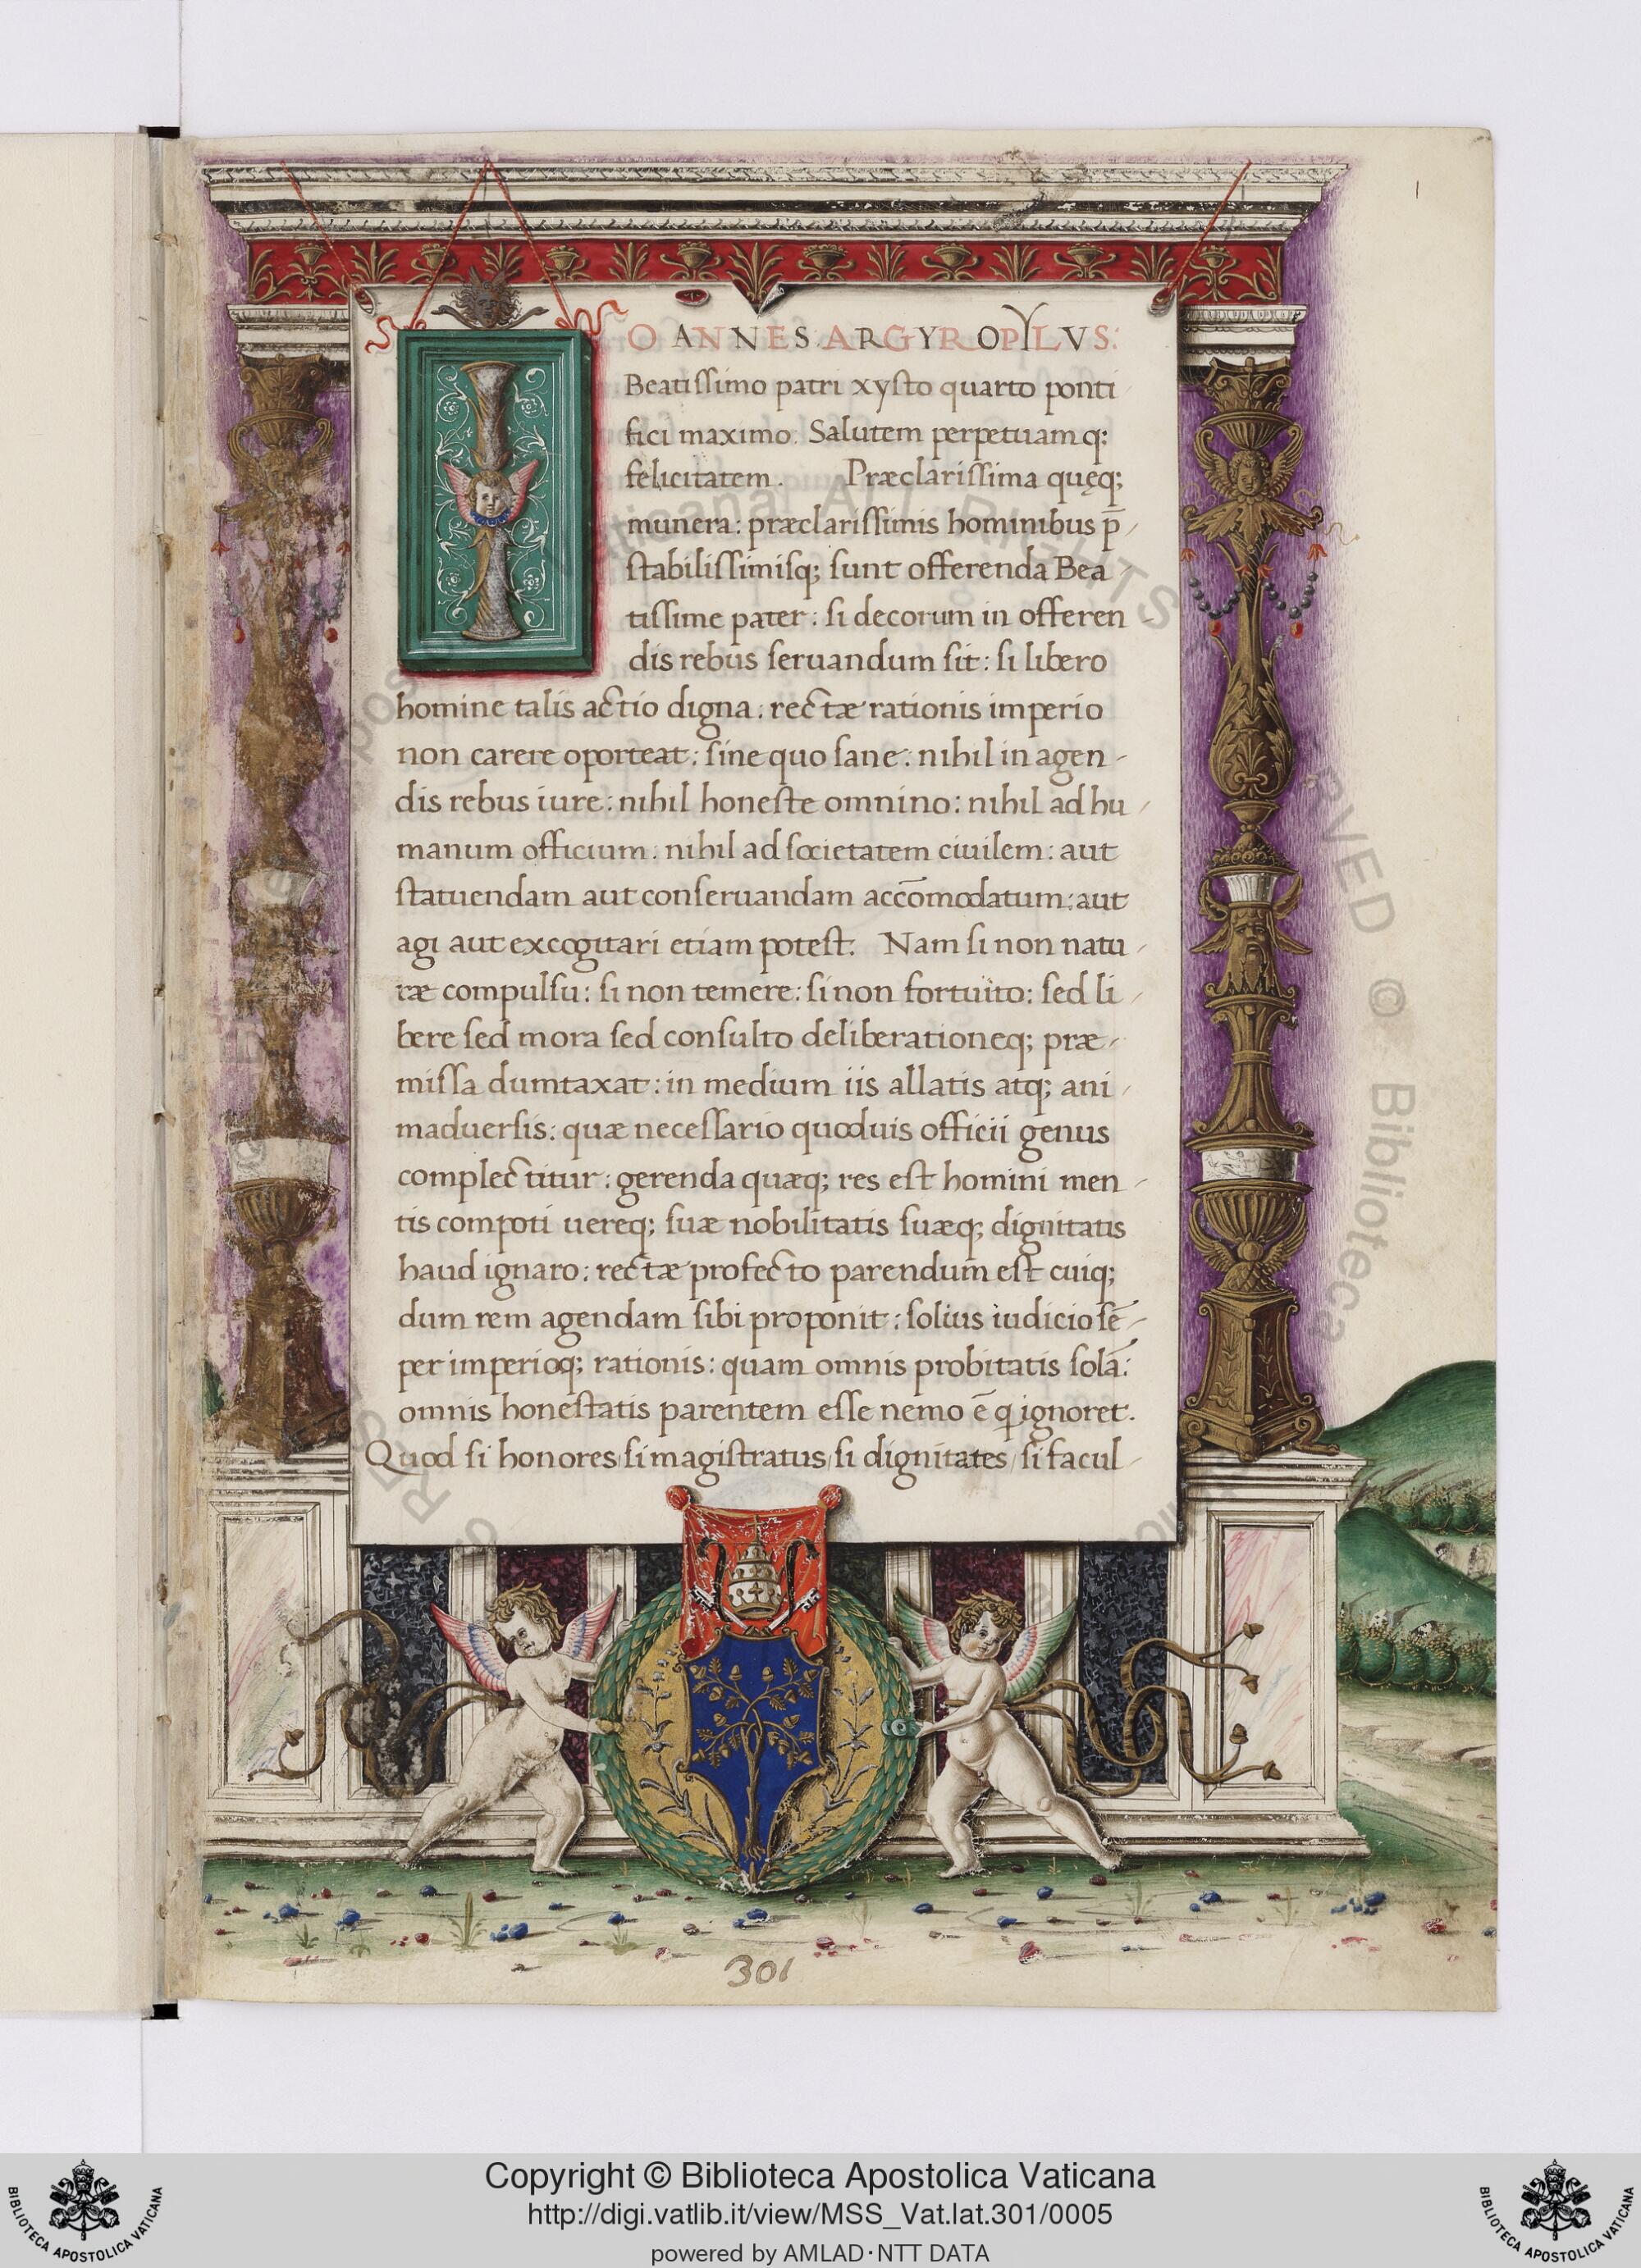 1
IOANNES ARGYROPYLVS:
Beatissimo patri xysto quarto ponti
fici maximo. Salutem perpetuamq:
felicitatem. Præclarissima quęq;
munera: præclarissimis hominibus p̄
stabilissimisq; sunt offerenda Bea
tissime pater: si decorum in offeren
dis rebus seruandum sit: si libero
homine talis actio digna: rectæ rationis imperio
non carere oporteat: sine quo sane: nihil in agen-
dis rebus iure: nihil honeste omnino: nihil ad hu-
manum officium. nihil ad societatem ciuilem: aut
statuendam aut conseruandam accōmodatum: aut
agi aut excogitari etiam potest. Nam si non natu-
ræ compulsu: si non temere: si non fortuito: sed li-
bere sed mora sed consulto deliberationeq; præ-
missa dumtaxat: in medium iis allatis atq; ani-
maduersis: quæ necessario quoduis officii genus
complectitur: gerenda quæq; res est homini men-
tis compoti uereq; suæ nobilitatis suæq; dignitatis
haud ignaro: rectæ profecto parendum est cuiq;
dum rem agendam sibi proponit: solius iudicio sē-
per imperioq; rationis: quam omnis probitatis solā:
omnis honestatis parentem esse nemo ē q ignoret.
Quod si honores/si magistratus/si dignitates/si facul-
301
Copyright © Biblioteca Apostolica Vaticana
http://digi.vatlib.it/view/MSS_Vat.lat.301/0005
powered by AMLAD·NTT DATA
BIBLIOTECA APOSTOLICA VATICANA
BIBLIOTECA APOSTOLICA VATICANA